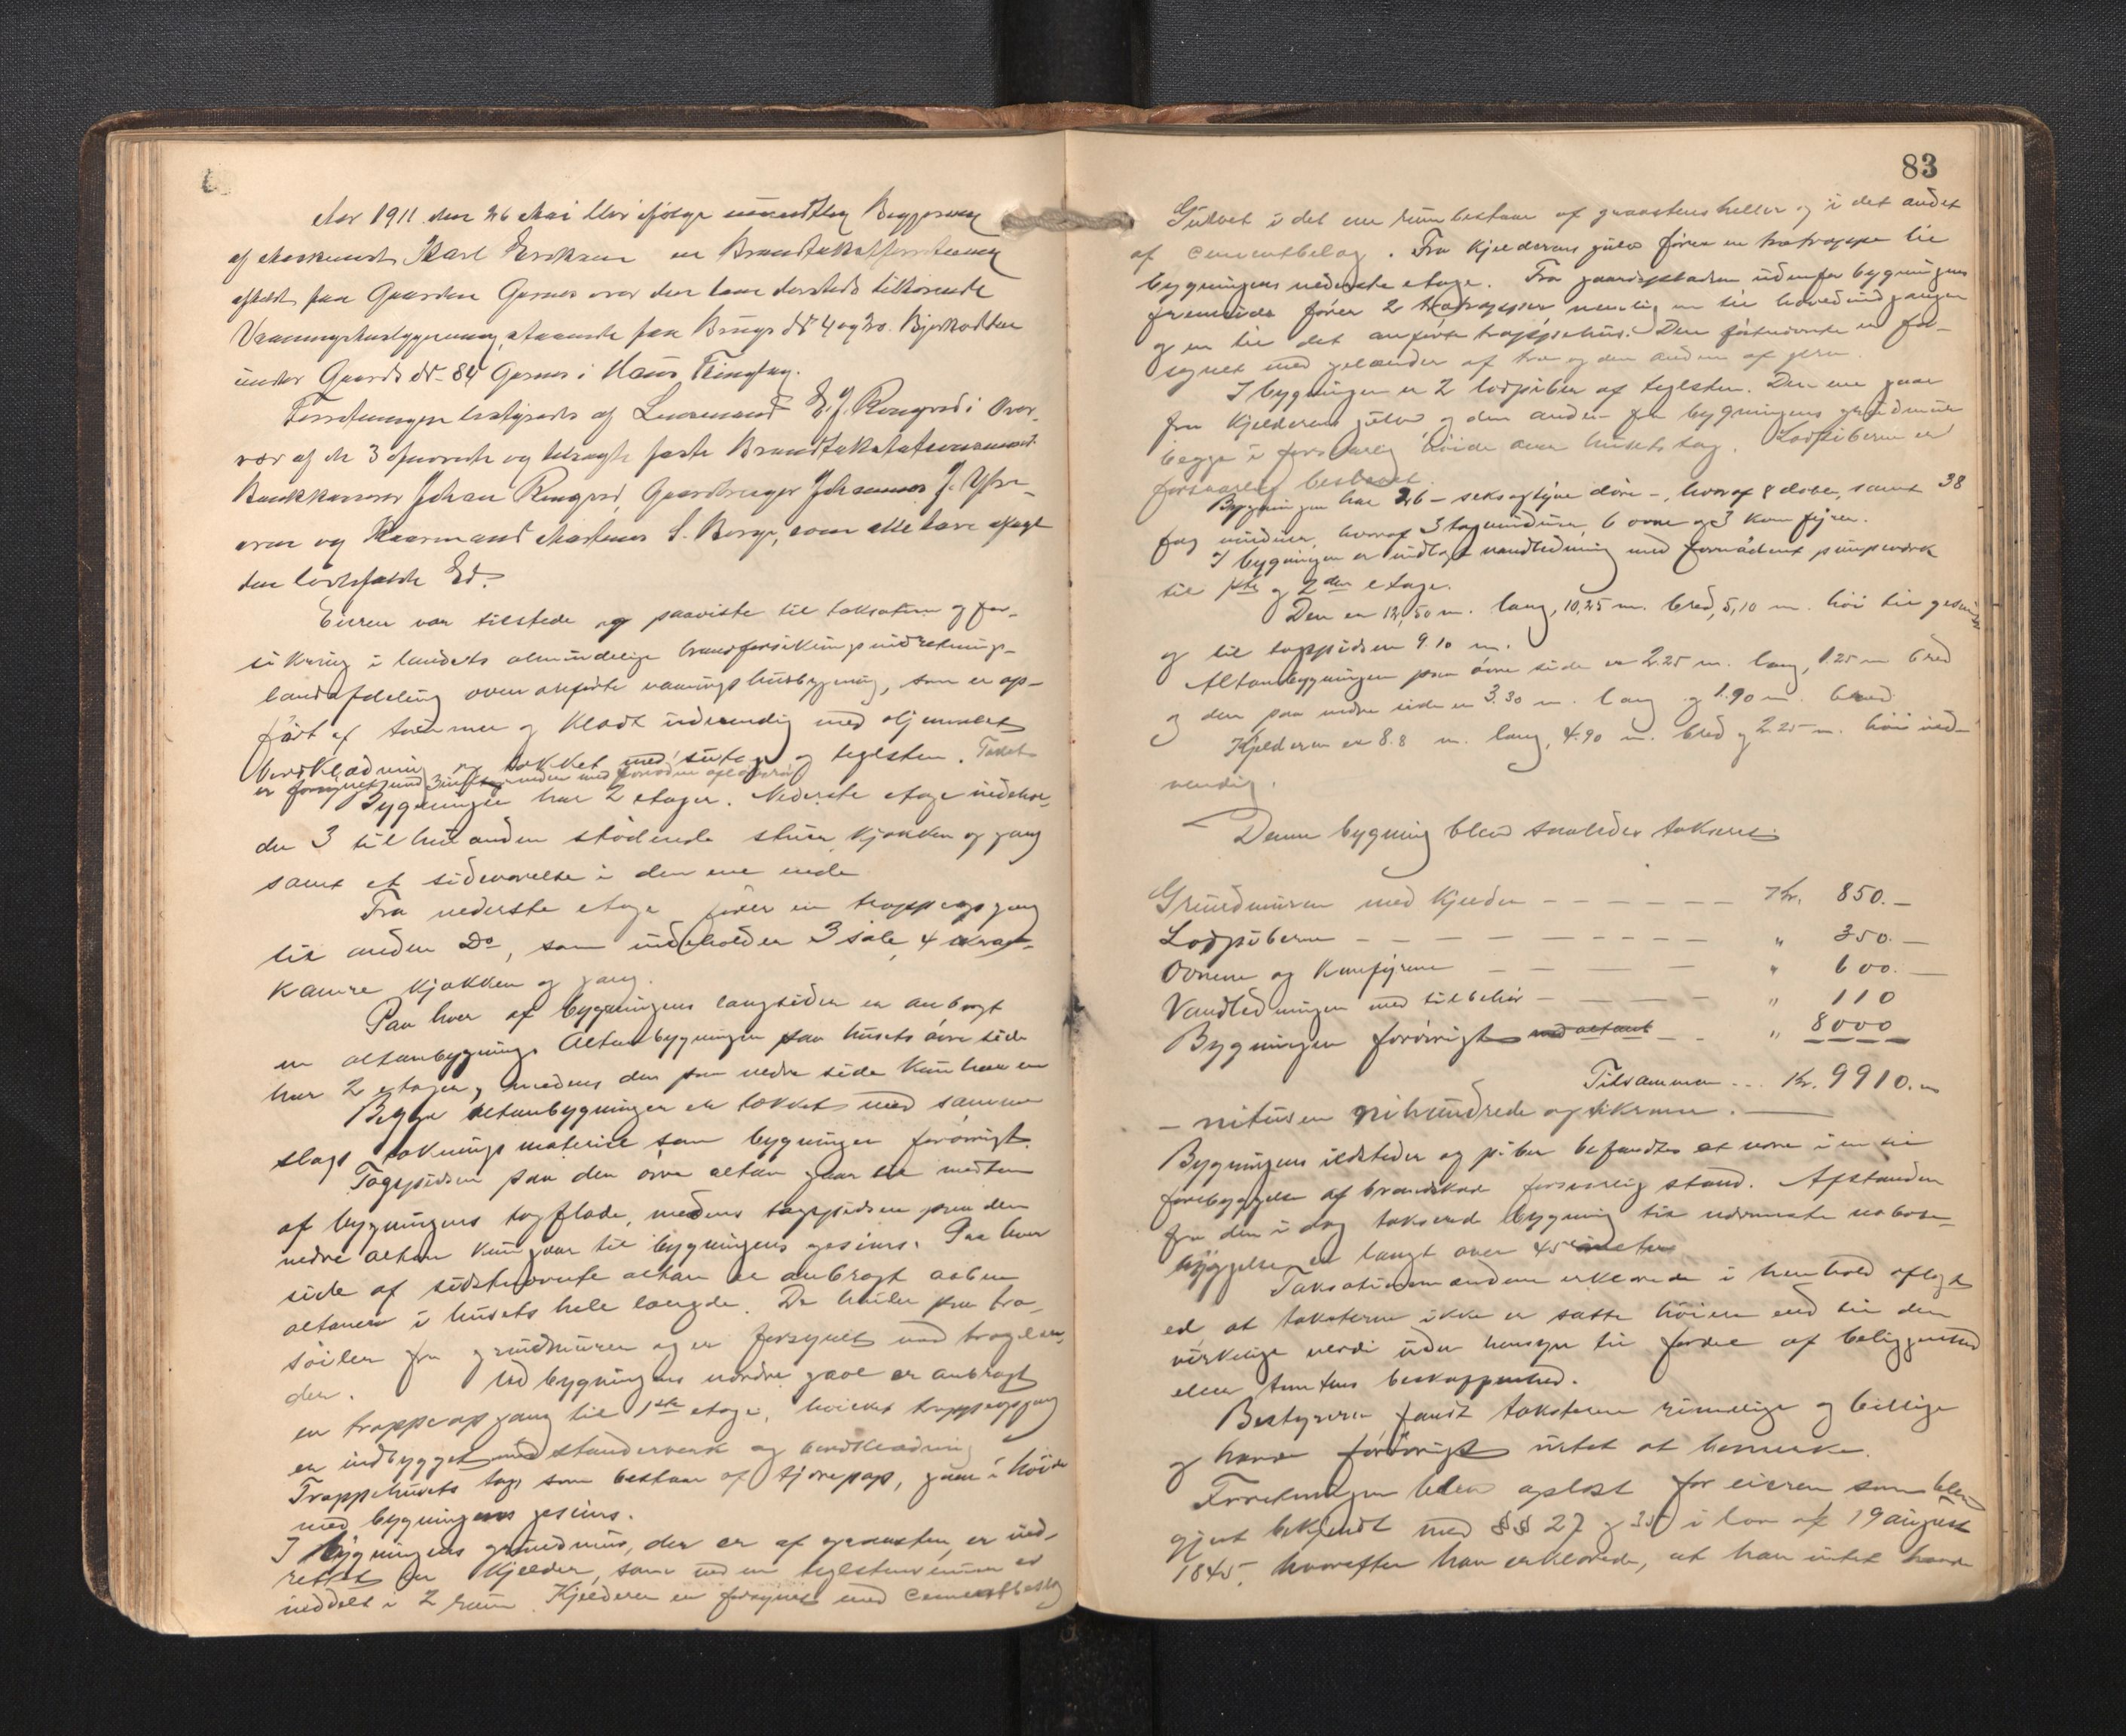 Aar 1911 den 26 Mai blev ifølge mundtlig Begjæring
af Maskinist Karl Eriksen en Brandtakstforretning
afholdt paa Gaarden Garnes over den ham dersteds tilhørende
Vaaningshusbygning, staaende paa Brugs Nr 4 og 20. Bjerkodden
under Gaards Nr 84 Garnes i Haus Thinglag.
Forretningen bestyredes af Lensmand E. J. Rongved i Over-
vær af de 3 opnævnte og tilsagte faste Brandtakstationsmænd
Bankkasserer Johan Rongved, Gaardbruger Johannes J.
og Haarmand Martinus S. Borge, som alle have aflagt
den lovbefalede Ed.
Eieren var tilstede og paaviste til taksation og for-
sikring i landets almindelige brandforsikringsindretnings
landafdeling oven anførte vaaningshusbygning, som er op-
ført af tømmer og klædt udvendig med oljemalet
bordklædning og tækket med sutag og teglsten. Taket
er forsynet med 3
Bygningen har 2 etager. Nederste etage indehol-
der 3 til hinanden stødende stuer, kjøkken og gang
samt et sideværelse i den ene ende
Fra nederste etage fører en trappeopgang
til anden Do, som indeholder 3 sale, 4
kamre kjøkken og gang.
Paa hver af bygningens langsider er anbragt
en altanbygning. Altanbygningen paa husets øvre side
har 2 etager, medens den paa nedre side kun har en
Begge altanbygninger er tækket med samme
slags tækningsmateriel som bygningen forøvrigt.
Tagspidsen paa den øvre altan gaar til midten
af bygningens tagflade, medens tagspidsen paa den
nedre altan kun gaar til bygningens gesims. Paa hver
side af sidstnævnte altan er anbragt aaben
altaner i husets hele længde. De hviler paa træ-
søiler fra grundmuren og er forsynet med trægelæn-
der. Ved bygningens nordre gavl er anbragt
en trappeopgang til 1ste etage, hvilket trappeopgang
er indbygget med stenderverk og bordklædning
Trappehusets tag som bestaar af tjærepap, gaar i høide
med bygningens gesims.
I bygningens grundmur, der er af graasten, er ind-
rettet en kjælder, som ved en teglstensmur er
inddelt i 2 rum. Kjælderen er forsynet med cementbeslag
83
Gulvet i det ene rum bestaar af graastensheller og i det andet
af cementbelag. Fra kjælderens gulv fører en trætrappe til
bygningens nederste etage. Fra gaardspladsen udenfor bygningens
fremside fører 2 trætrapper nemlig en til hovedindgangen
og en til det anførte trappehus. Den førstnævnte er for-
synet med gelænder af træ og den anden af jern.
I bygningen er 2 lodpiber af teglsten. Den ene gaar
fra kjælderens gulv og den anden fra bygningens grundmur
begge i forsvarlig høide over husets tag. Lodpiberne er
forsvarlig beslaaet.
Bygningen har 26 - seksogtyve døre -, hvoraf 8 doble, samt 38
fag vinduer, hvoraf 3 tagvinduer, 6 ovne og 3 komfyrer.
I bygningen er indlagt vandledning med fornødent pumpeværk
til 1ste og 2den etage.
Den er 12,50 m. lang, 10,25 m. bred, 5,10 m. høi til gesims
og til tagspidsen 9.10 m.
Altanbygningen paa øvre side er 2.25 m. lang, 1.25 m bred
og den paa nedre side er 3.30 m. lang og 1.90 m. bred
Kjælderen er 8.8 m. lang, 4.90 m. bred og 2.25 m. høi ind-
vendig.
Denne bygning blev saaledes takseret:
Grundmuren med kjælder - - - - - - Kr. 850.-
Lodpiberne - - - - - - - - - " 350.-
Ovnene og Komfyrene - - - - " 600.-
Vandledningen med tilbehør - - - - " 110
Bygningen forøvrigt med altant - - " 8000
Tilsammen ... Kr. 9910.-
- nitusen nihundrede og ti kroner.
Bygningens ildsteder og piber befandtes at være i en til
forebyggelse af brandskade forsvarlig stand. Afstanden
fra den i dag takserede bygning til nærmeste nabobe-
byggelse er langt over 45 meter
Taksationsmændene erklærede i henhold aflagt
ed, at taksterne ikke er satte høiere end til den
virkelige verdi uden hensyn til fordel af beliggenhed
eller tomtens beskaffenhed.
Bestyreren fandt taksterne rimelige og billige
og havde forøvrigt intet at bemerke.
Forretningen blev oplæst for eieren som blev
gjort bekjendt med §§ 27 og 35 i lov af 19 august
1845, hvorefter han erklærede, at han intet havde